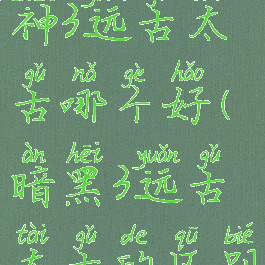 神3远古太
gǔ nǎ gè hǎo
古哪个好(
àn hēi yuǎn gǔ
暗黑3远古
tài gǔ de qū bié
太古的区别